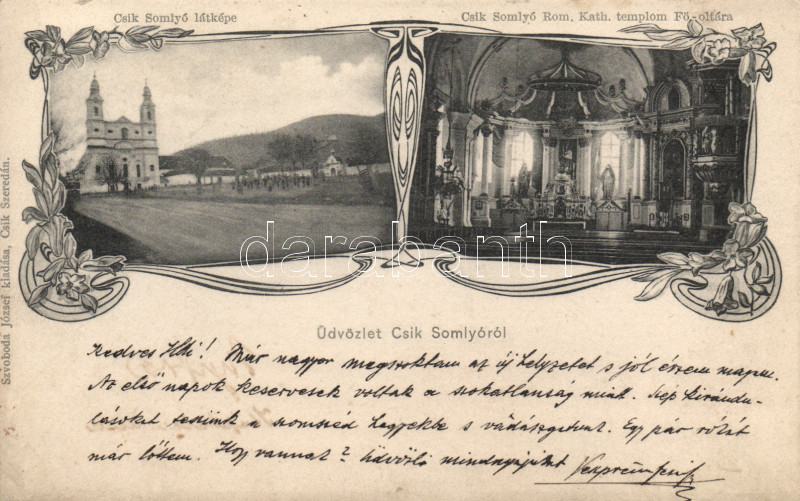 Csik Somlyó látképe
Csik Somlyó Rom. Kath. templom Fő-oltára
Szvoboda József kiadása, Csik Szeredán.
darabanth
Üdvözlet Csik Somlyóról
Kedves Ili! Már nagyon megszoktam az új helyzetet s jól érzem magam.
Az első napok keservesek voltak a szokatlanság miatt. Szép kirándu-
lásokat teszünk a szomszéd hegyekbe s vadászgatunk. Egy pár rókát
már lőttem. Hogy vannak? Üdvözli mindnyájukat